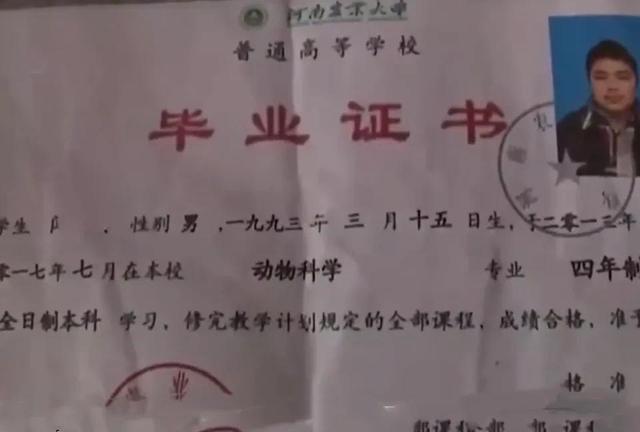 河南农业大学
普通高等学校
毕业证书
学生 性别 男 ，一九九三 年 三 月 十五 日生，于二零一三年
零一七年 七 月在本校 动物科学 专业 四年制
全日制本科 学习，修完教学计划规定的全部课程，成绩合格，准予
格 准
部课 部 部 课